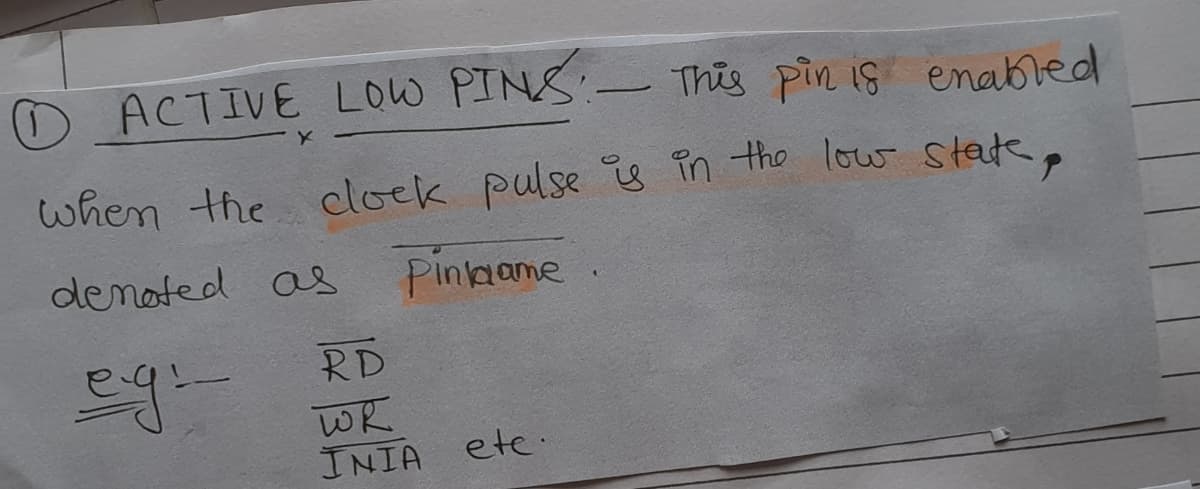 ① ACTIVE LOW PINS:— This pin is enabled
when the clock pulse is in the low state,
denoted as P̅i̅n̅n̅a̅m̅e̅.
e.g:— R̅D̅
W̅R̅
I̅N̅T̅A̅ etc.